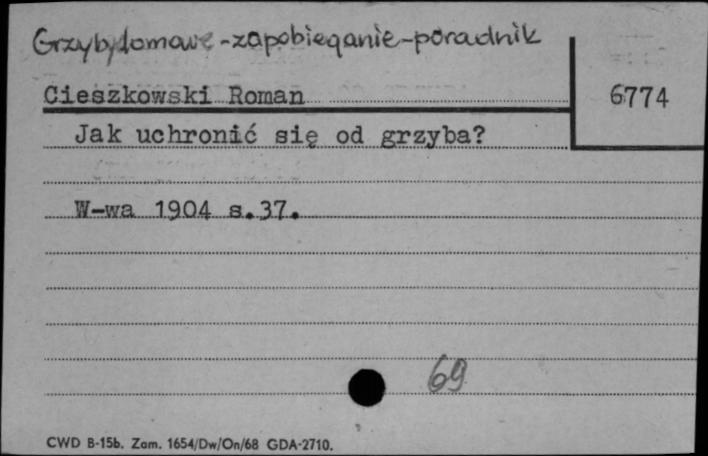 Grzyby domowe - zapobieganie - poradnik
Cieszkowski Roman
6774
Jak uchronić się od grzyba?
W-wa 1904 s.37.
69
CWD B-15b. Zam. 1654/Dw/On/68 GDA-2710.